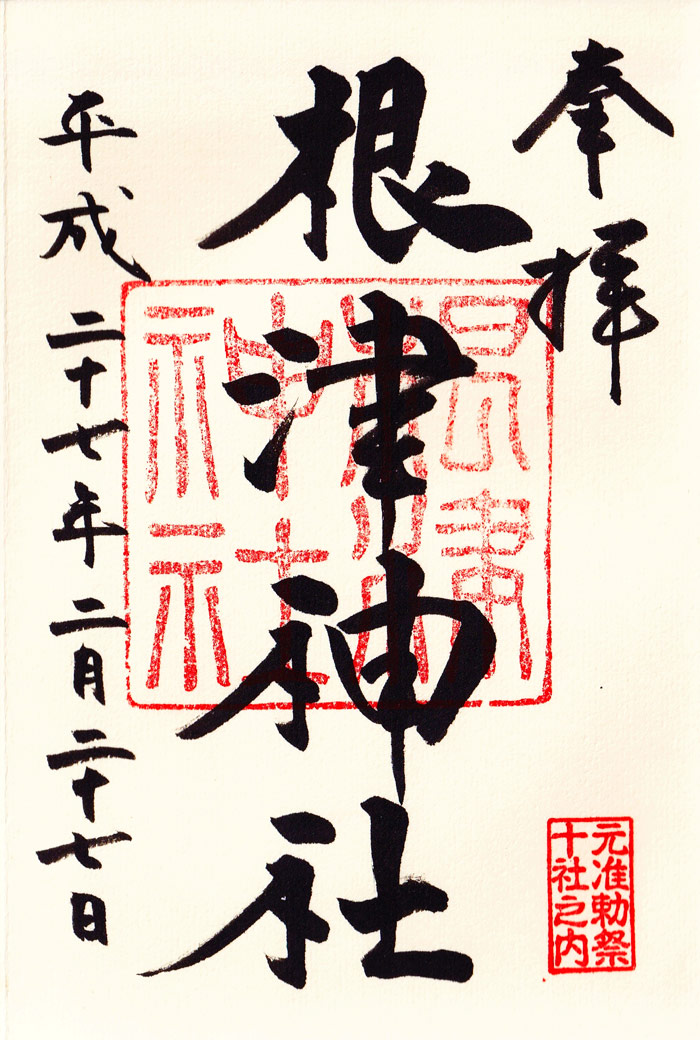 奉拝
根津神社
平成二十七年二月二十七日
根津神社
元准勅祭
十社之内